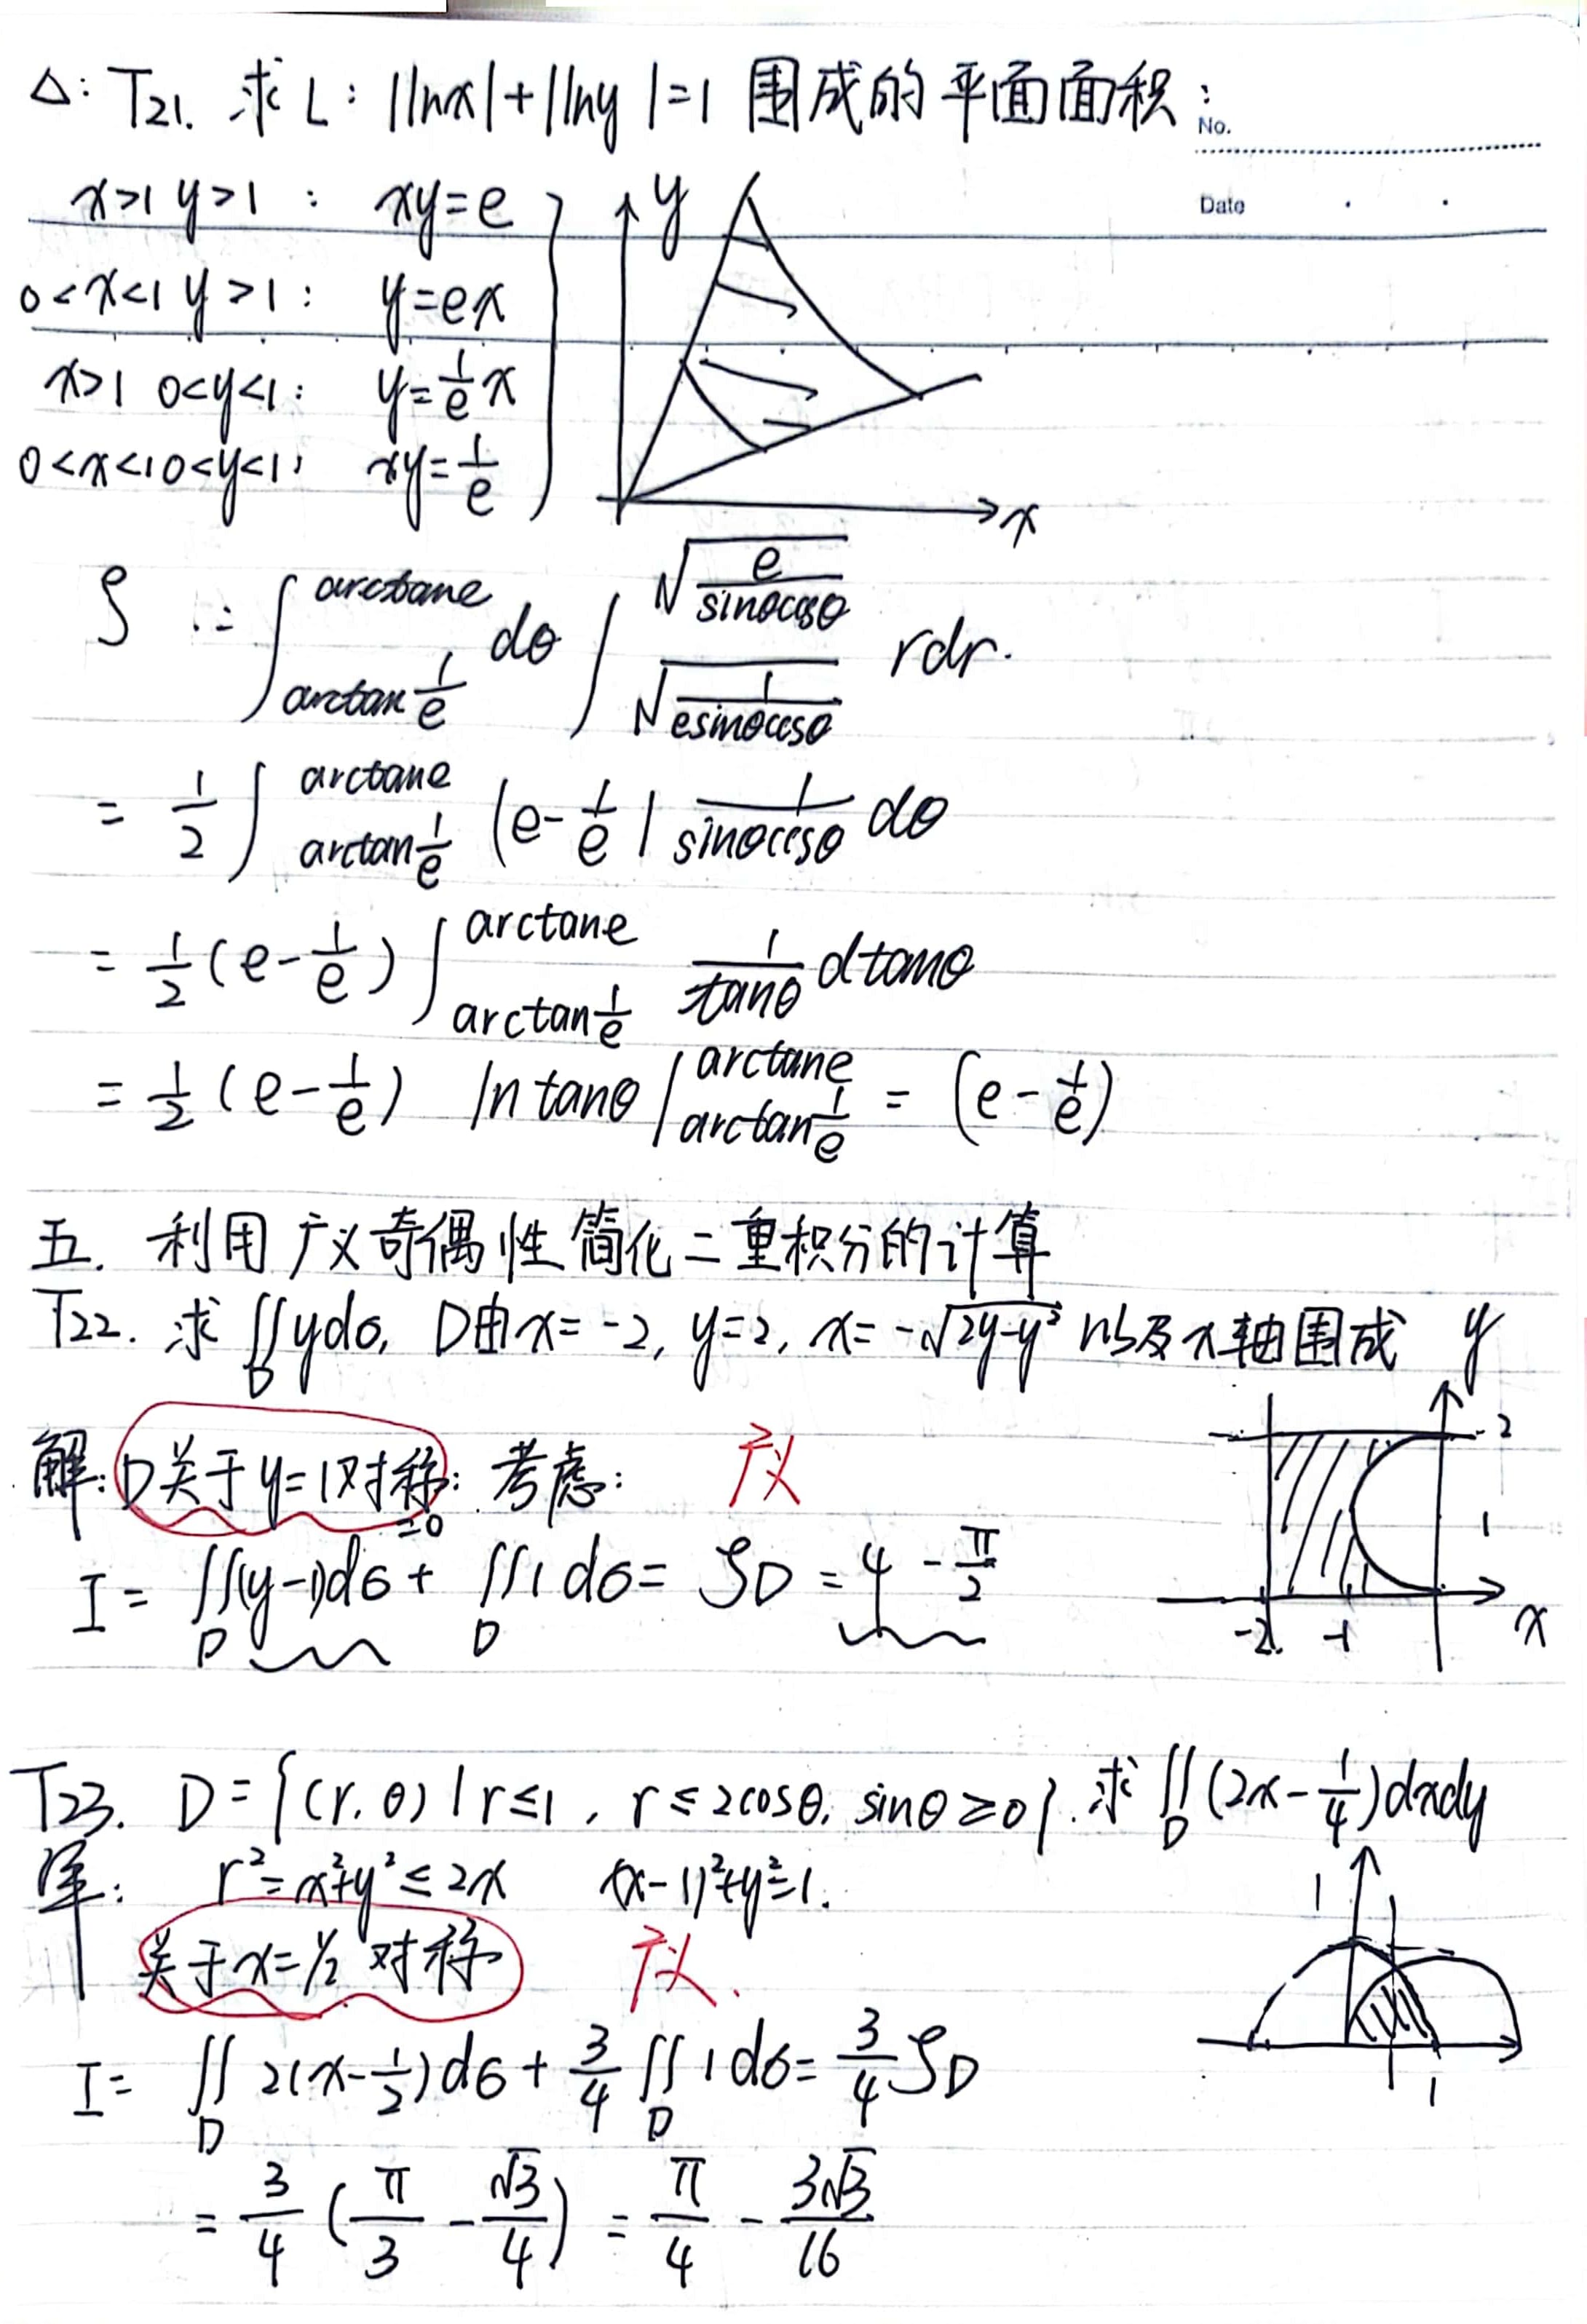 △: T21. 求 L: |lnx|+|lny|=1 围成的平面面积:
No.
Date
x>1 y>1 : xy=e
0<x<1 y>1: y=ex
x>1 0<y<1: y=1/e x
0<x<1 0<y<1: xy=1/e
y
x
S ∴= ∫_{arctan 1/e}^{arctane} dθ ∫_{√(1/(esinθcosθ))}^{√(e/(sinθcosθ))} rdr.
= 1/2 ∫_{arctan 1/e}^{arctane} (e-1/e) 1/(sinθcosθ) dθ
= 1/2 (e-1/e) ∫_{arctan 1/e}^{arctane} 1/tanθ dtanθ
= 1/2 (e-1/e) ln tanθ |_{arctan 1/e}^{arctane} = (e-1/e)
五. 利用广义奇偶性简化二重积分的计算
T22. 求 ∬_D ydσ, D由x=-2, y=2, x=-√(2y-y²) 以及x轴围成
解: D关于y=1对称: 考虑: 广义
I= ∬_D (y-1)dσ + ∬_D 1dσ = S_D = 4 - π/2
=0
y
2
1
-2 -1 x
T23. D={(r,θ)|r≤1, r≤2cosθ, sinθ≥0}. 求 ∬_D (2x-1/4)dxdy
解: r²=x²+y²≤2x (x-1)²+y²=1.
关于x=1/2 对称 广义.
1
1
I= ∬_D 2(x-1/2)dσ + 3/4 ∬_D 1dσ = 3/4 S_D
= 3/4 (π/3 - √3/4) = π/4 - 3√3/16